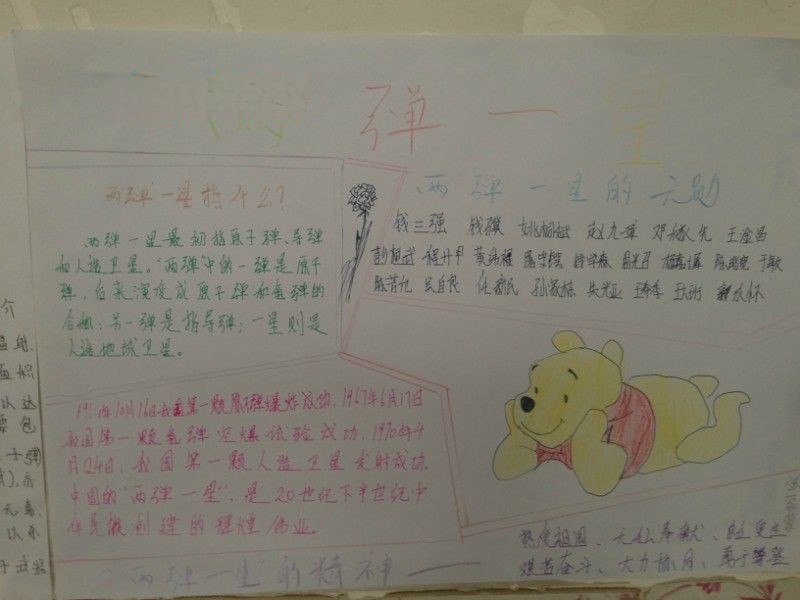 两弹一星
两弹一星的元勋
两弹一星指什么?
两弹一星最初指原子弹、导弹
和人造卫星。“两弹”中的一弹是原子
弹,后来演变成原子弹和氢弹的
合称;另一弹是指导弹;一星则是
人造地球卫星。
钱三强 钱骥 姚桐斌 赵九章 邓稼先 王淦昌
彭桓武 程开甲 黄纬禄 屠守锷 陈能宽 于敏
吴自良 任新民 孙家栋 朱光亚 王希季 王大珩 郭永怀
10月16日我国第一颗原子弹爆炸成功,1967年6月17日
我国第一颗氢弹空爆试验成功,1970年4
月24日,我国第一颗人造卫星发射成功,
中国的“两弹一星”,是20世纪下半世纪中
华民族创建的辉煌伟业。
“两弹一星”的精神——
热爱祖国、无私奉献、自力更生
艰苦奋斗、大力协同、勇于攀登
介
以达
子弹